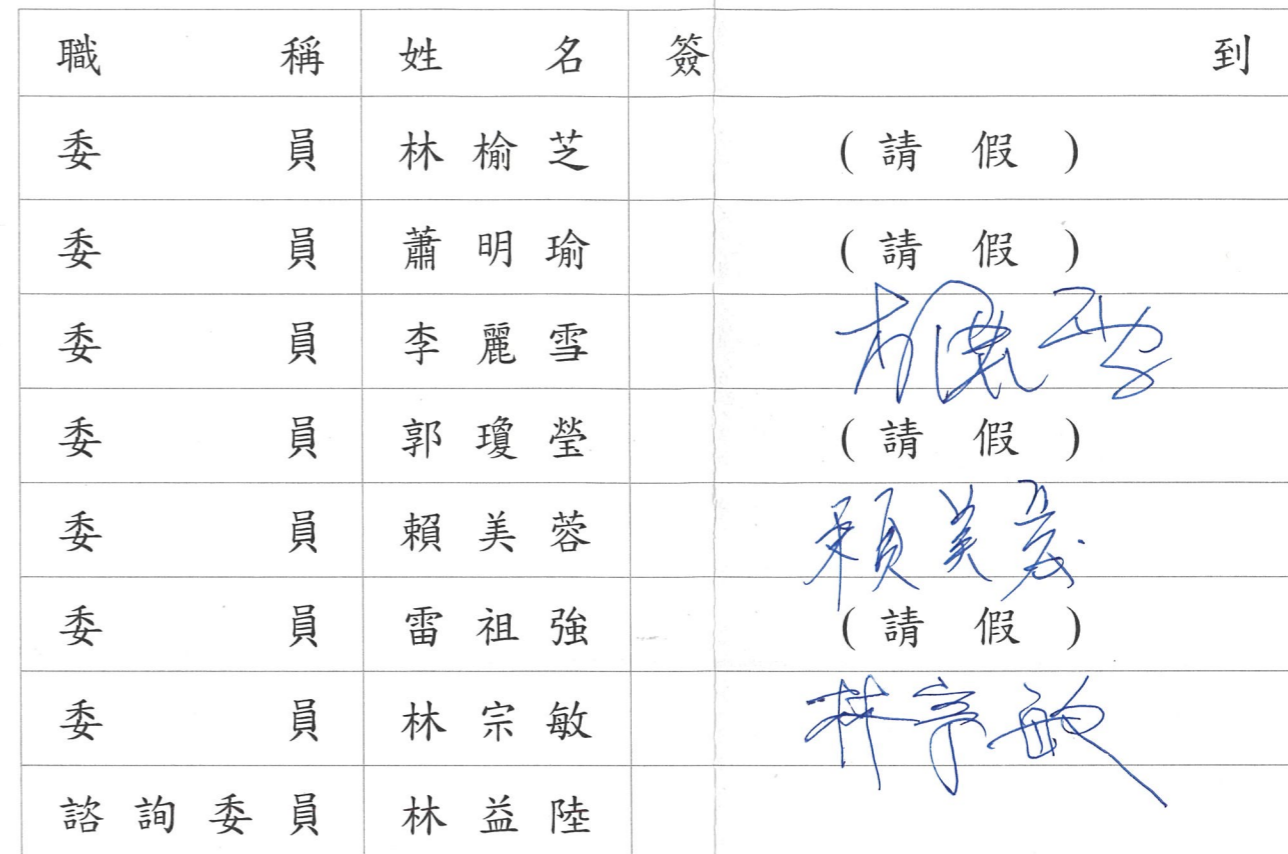 職稱 姓名 簽到
委員 林榆芝 (請假)
委員 蕭明瑜 (請假)
委員 李麗雪
委員 郭瓊瑩 (請假)
委員 賴美蓉 賴美蓉
委員 雷祖強 (請假)
委員 林宗敏 林宗敏
諮詢委員 林益陸